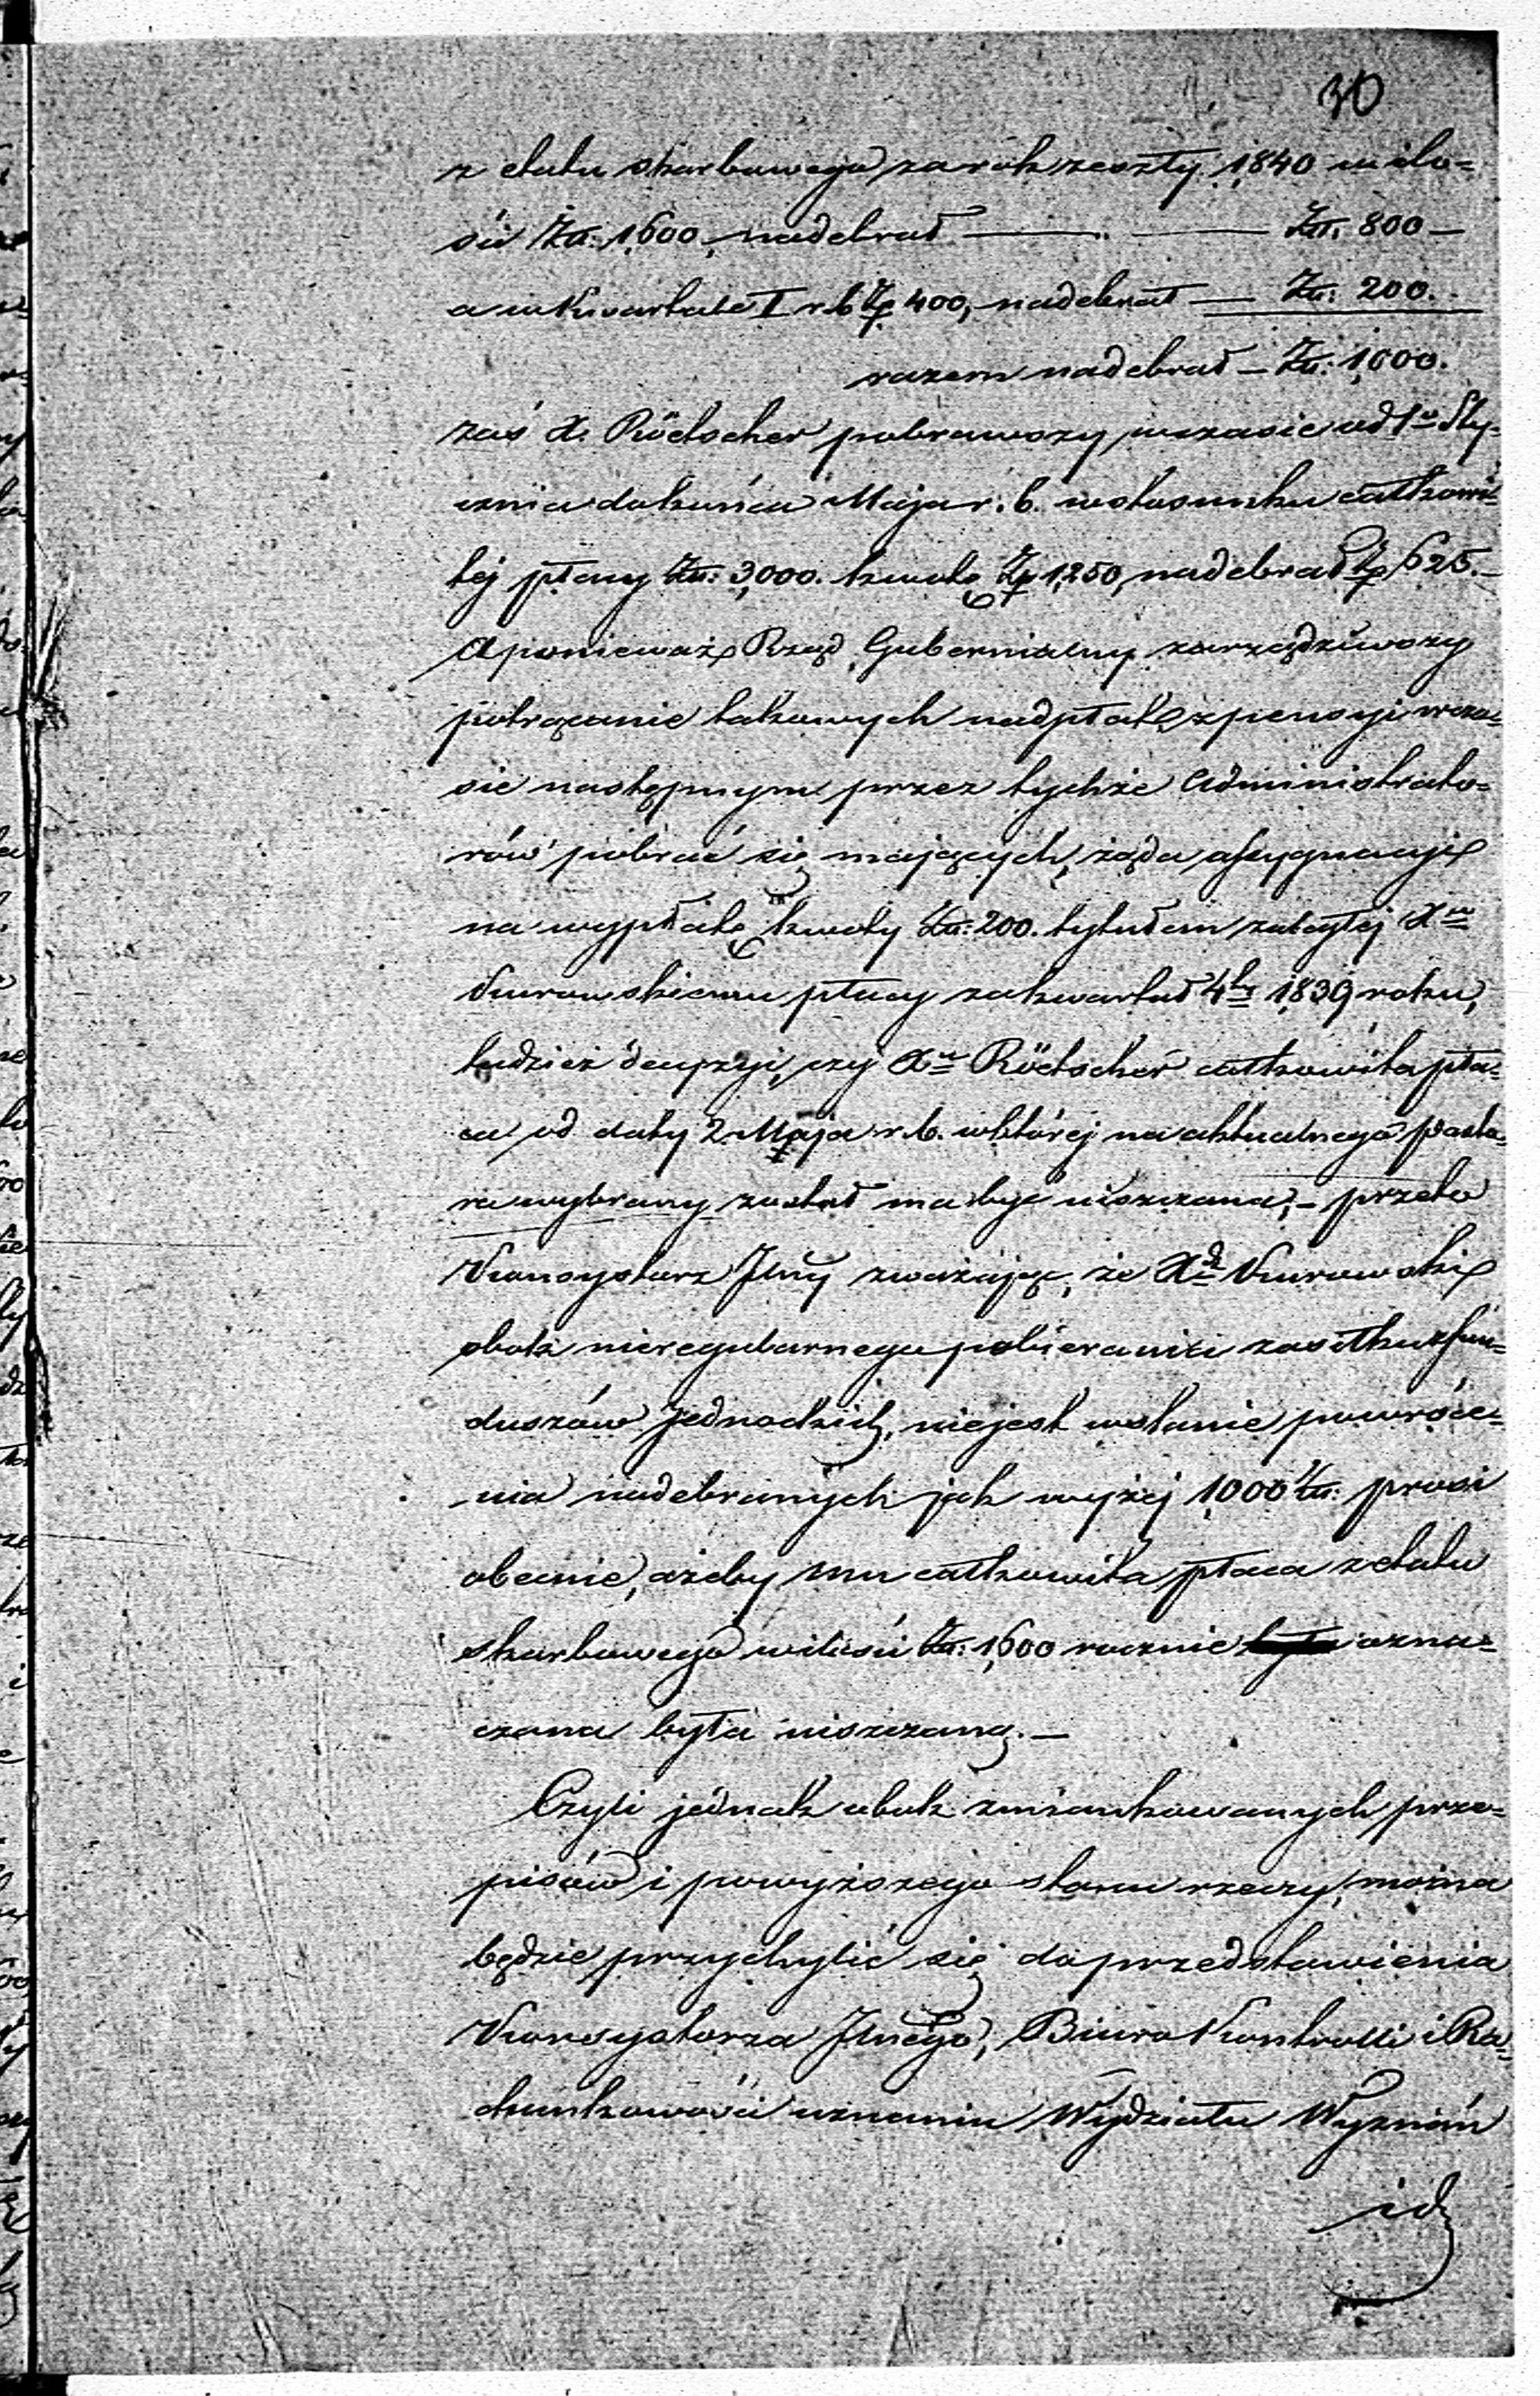 30
z etatu skarbowego za rok zeszły 1840 w ilo=
ści Złł: 1,600, nadebrał — Złł. 800 —
a w Kwartale I r. b. Zp 400, nadebrał — Złł: 200.
razem nadebrał — Złł: 1,000.
zaś X. Röetscher pobrawszy w czasie od 1o Sty=
cznia do końca Maja r. b. w stosunku całkowi=
tej płacy Złł: 3,000. kwotę Zp 1,250, nadebrał Zp 625. —
A ponieważ Rząd Gubernialny zarządziwszy
potrącanie takowych nadpłat z pensyi w cza=
sie następnym przez tychże Administrato=
rów pobrać się mających, żąda assygnacyi
na wypłatę kwoty Złł: 200. tytułem zaległej Xu
Kurowskiemu płacy za kwartał 4ty 1839 roku,
tudzież decyzyi, czy Xu Röetscher całkowita pła=
ca od daty 2 Maja r. b. w której na aktualnego pasto=
ra wybrany został ma być uiszczana, – przeto
Konsystorz Jlny zważając, że Xdz Kurowski
obok nieregularnego pobierania zasiłku z fun=
duszów jednockich, nie jest w stanie powróce=
nia nadebranych jak wyżej 1000 Złł: prosi
obecnie, ażeby mu całkowita płaca z etatu
skarbowego w ilości Złł: 1,600 rocznie ozna=
czona była uiszczaną. —
Czyli jednak obok zmiankowanych prze=
pisów i powyższego stanu rzeczy, można
będzie przychylić się do przedstawienia
Konsystorza Jlnego, Biuro Kontrolli i Ra=
chunkowości uznaniu Wydziału Wyznań
id